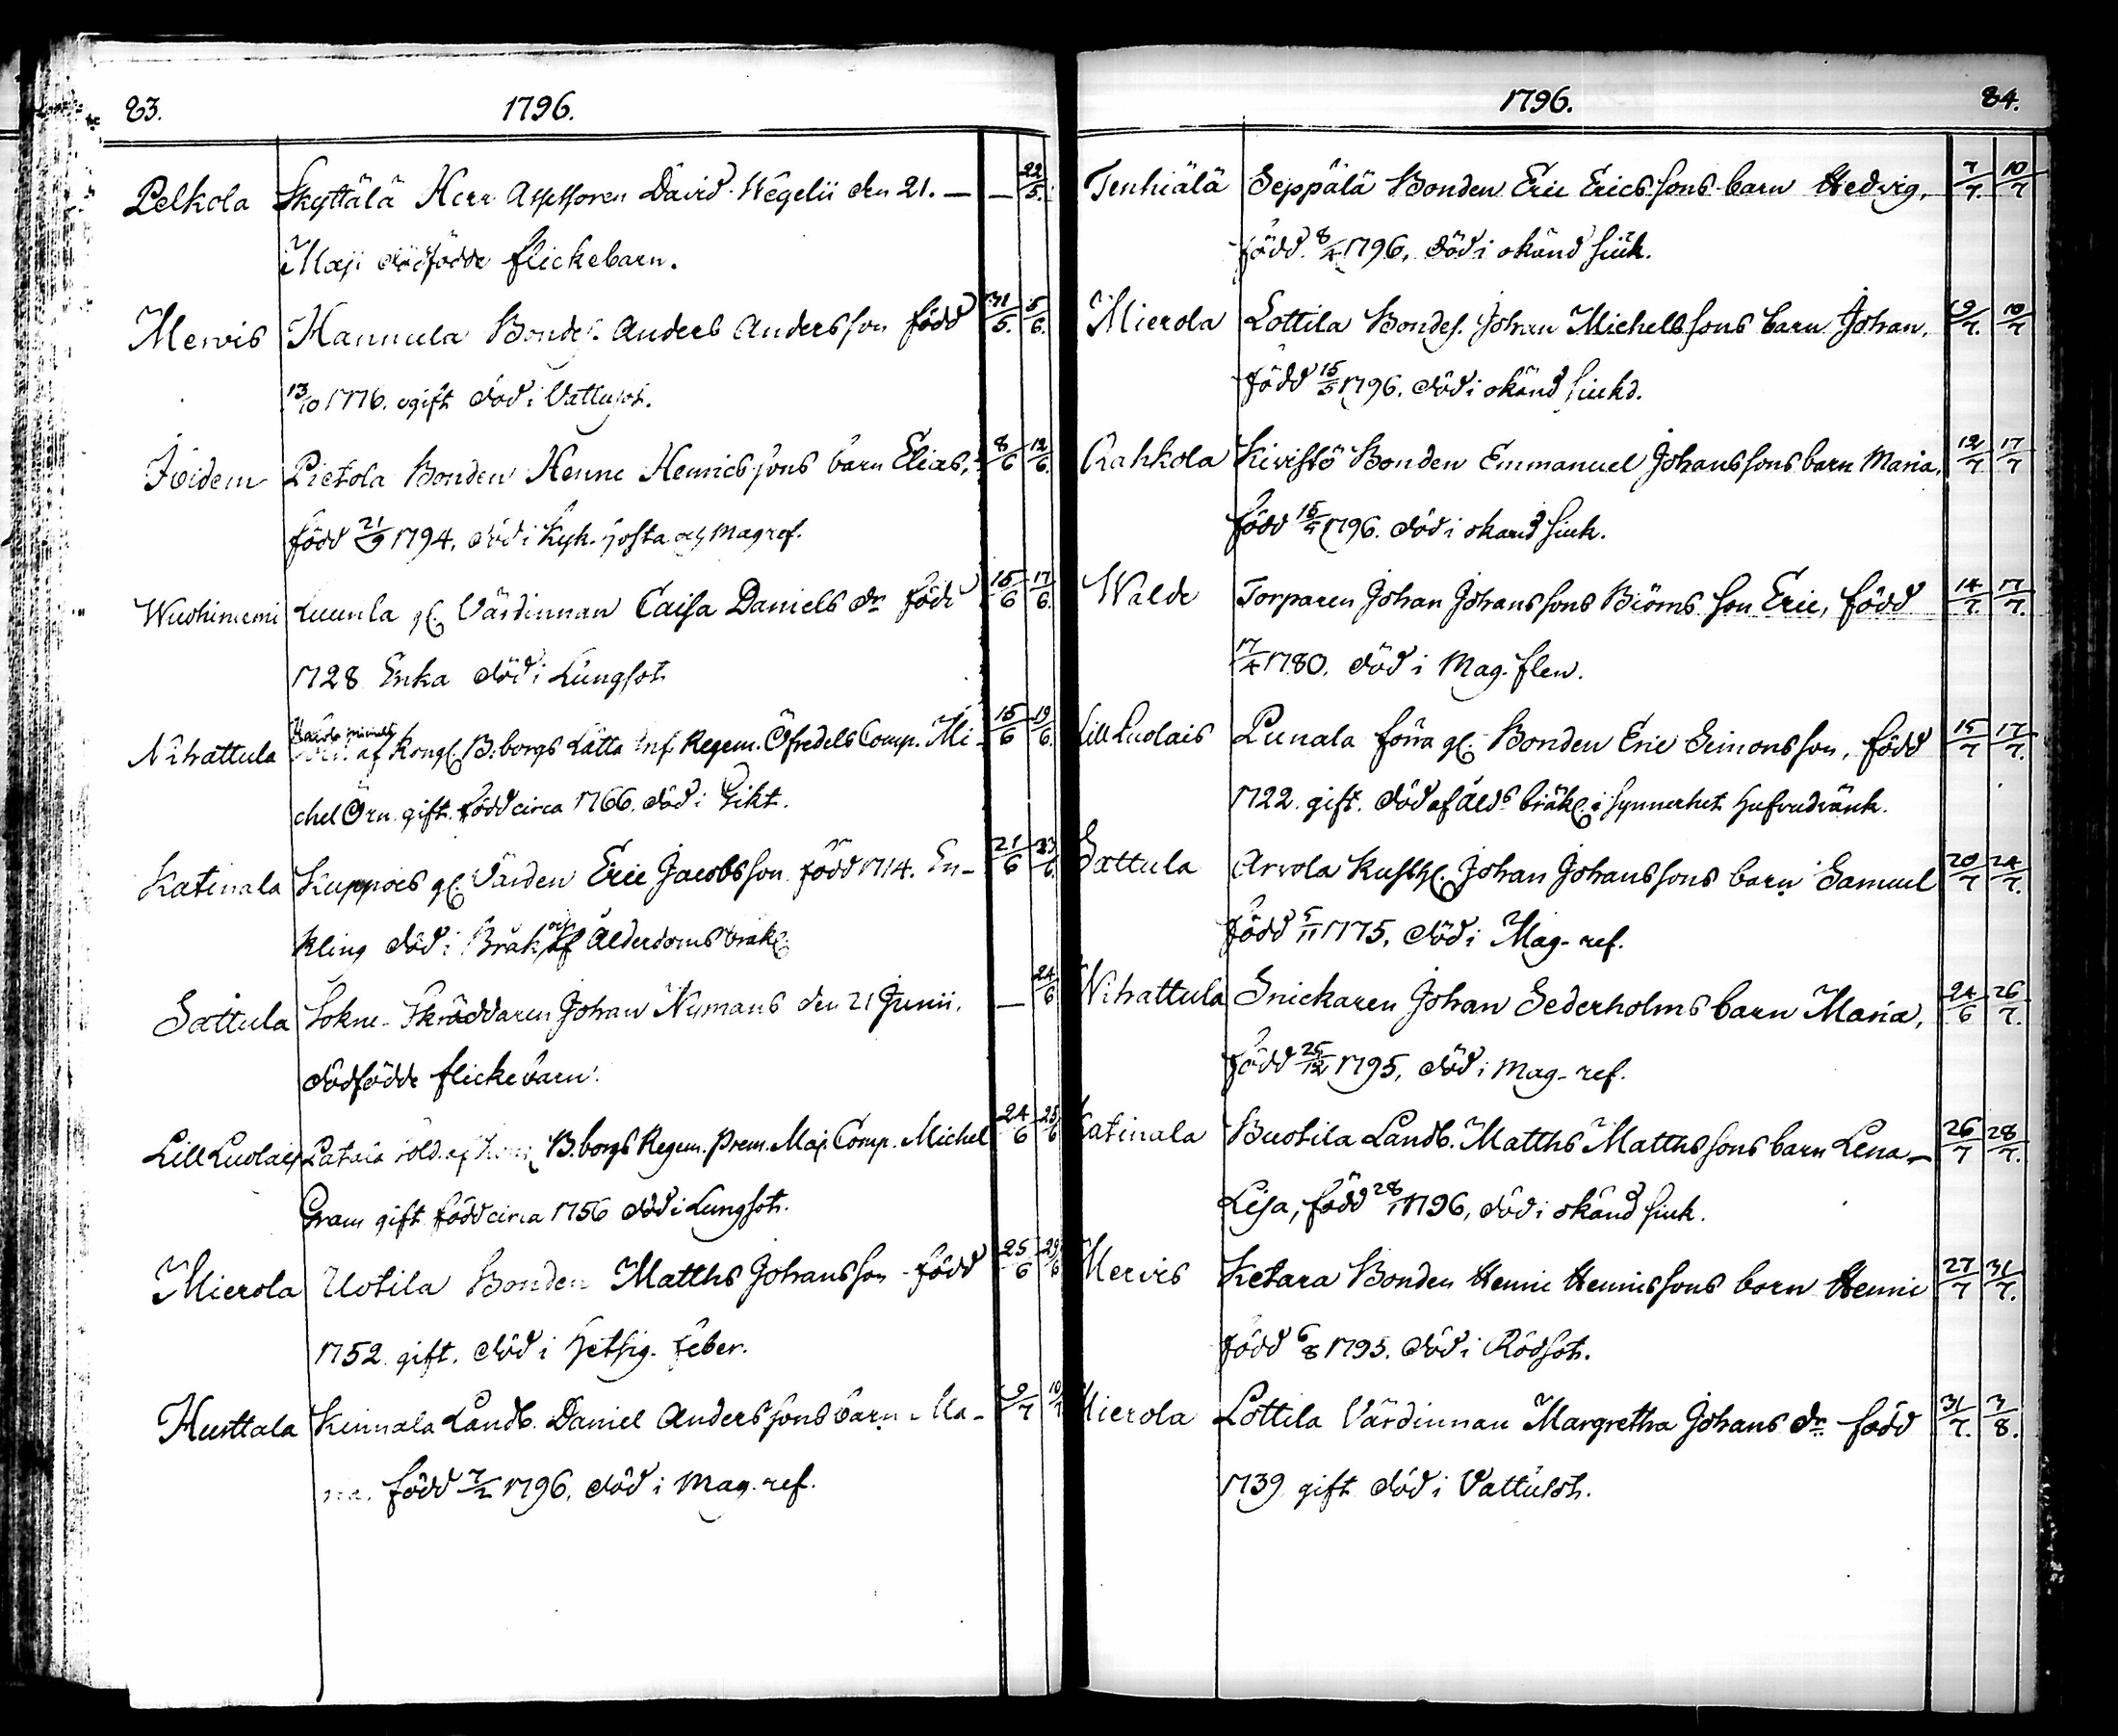 83. 1796.
Pelkola Skyttälä Herr Assessoren David Wegelii den 21. — — 22/5.
Maji dödfödde flickebarn.
Mervis Hannula Bondes. Anders Andersson född 31/5. 5/6.
13/10 1776. ogift död i Vattusot.
Ibidem Pietola Bonden Henric Henricssons barn Elias, 8/6 12/6.
född 21/9 1794. död i Kyk-hosta och Magref.
Wuohiniemi Luurila gl. Värdinnan Caisa Daniels dr född 15/6 17/6.
1728 Enka död i Lungsot
N: hattula af Kongl. B:borgs Lätta Inf. Regem. Öfredels Comp. Mi- 15/6 19/6.
chel Örn. gift. född circa 1766. död i Gikt.
Katinala Kuppois gl. Värden Eric Jacobsson född 1714. En- 21/6 23/6.
kling död i Bråk och Ålderdoms bräkl.
Sattula Sokne-Skräddaren Johan Nymans den 21 Junii. — 24/6
dödfödde flickebarn.
Lill Luolais sold. af B.borgs Regem. Prem. Maj. Comp. Michel 24/6 25/6
Gram gift född circa 1756 död i Lungsot.
Mierola Uotila Bonden Matths Johansson född 25/6 29/6
1752. gift. död i Hetsig feber.
Hurttala Kinnala Landb. Daniel Anderssons barn Ma- 9/7 10/7
ria. född 7/2 1796. död i Mag-ref.
1796. 84.
Tenhiälä Seppälä Bonden Eric Ericssons barn Hedvig, 7/7. 10/7
född 8/4 1796. död i okänd siuk.
Mierola Lottila Bondes. Johan Michelssons barn Johan. 9/7. 10/7
född 15/5 1796. död i okänd siukd.
Rahkola Kivistö Bonden Emmanuel Johanssons barn Maria. 12/7 17/7
född 15/4 1796. död i okänd siuk.
Walde Torparen Johan Johanssons Biöms son Eric, född 14/7. 17/7.
17/4 1780. död i Mag. flen.
Lill Luolais Punala förra gl. Bonden Eric Simonsson, född 15/7 17/7.
1722. gift. död af Åld:s bräkl. i synnerhet hufvudvänk.
Sattula Arvola Johan Johanssons barn Samuel 20/7 24/7.
född 5/11 1775, död i Mag-ref.
N: hattula Snickaren Johan Sederholms barn Maria, 24/6 26/7.
född 25/12 1795, död i Mag-ref.
Katinala Buotila Landb. Matths Matthssons barn Lena- 26/7 28/7.
Lisa, född 28/1 1796, död i okänd siuk.
Mervis Ketara Bonden Henric Henricssons barn Henric 27/7 31/7.
född 6/8 1795. död i Rödsot.
Mierola Lottila Värdinnan Margretha Johans dr född 31/7. 3/8.
1739 gift död i Vattusot.